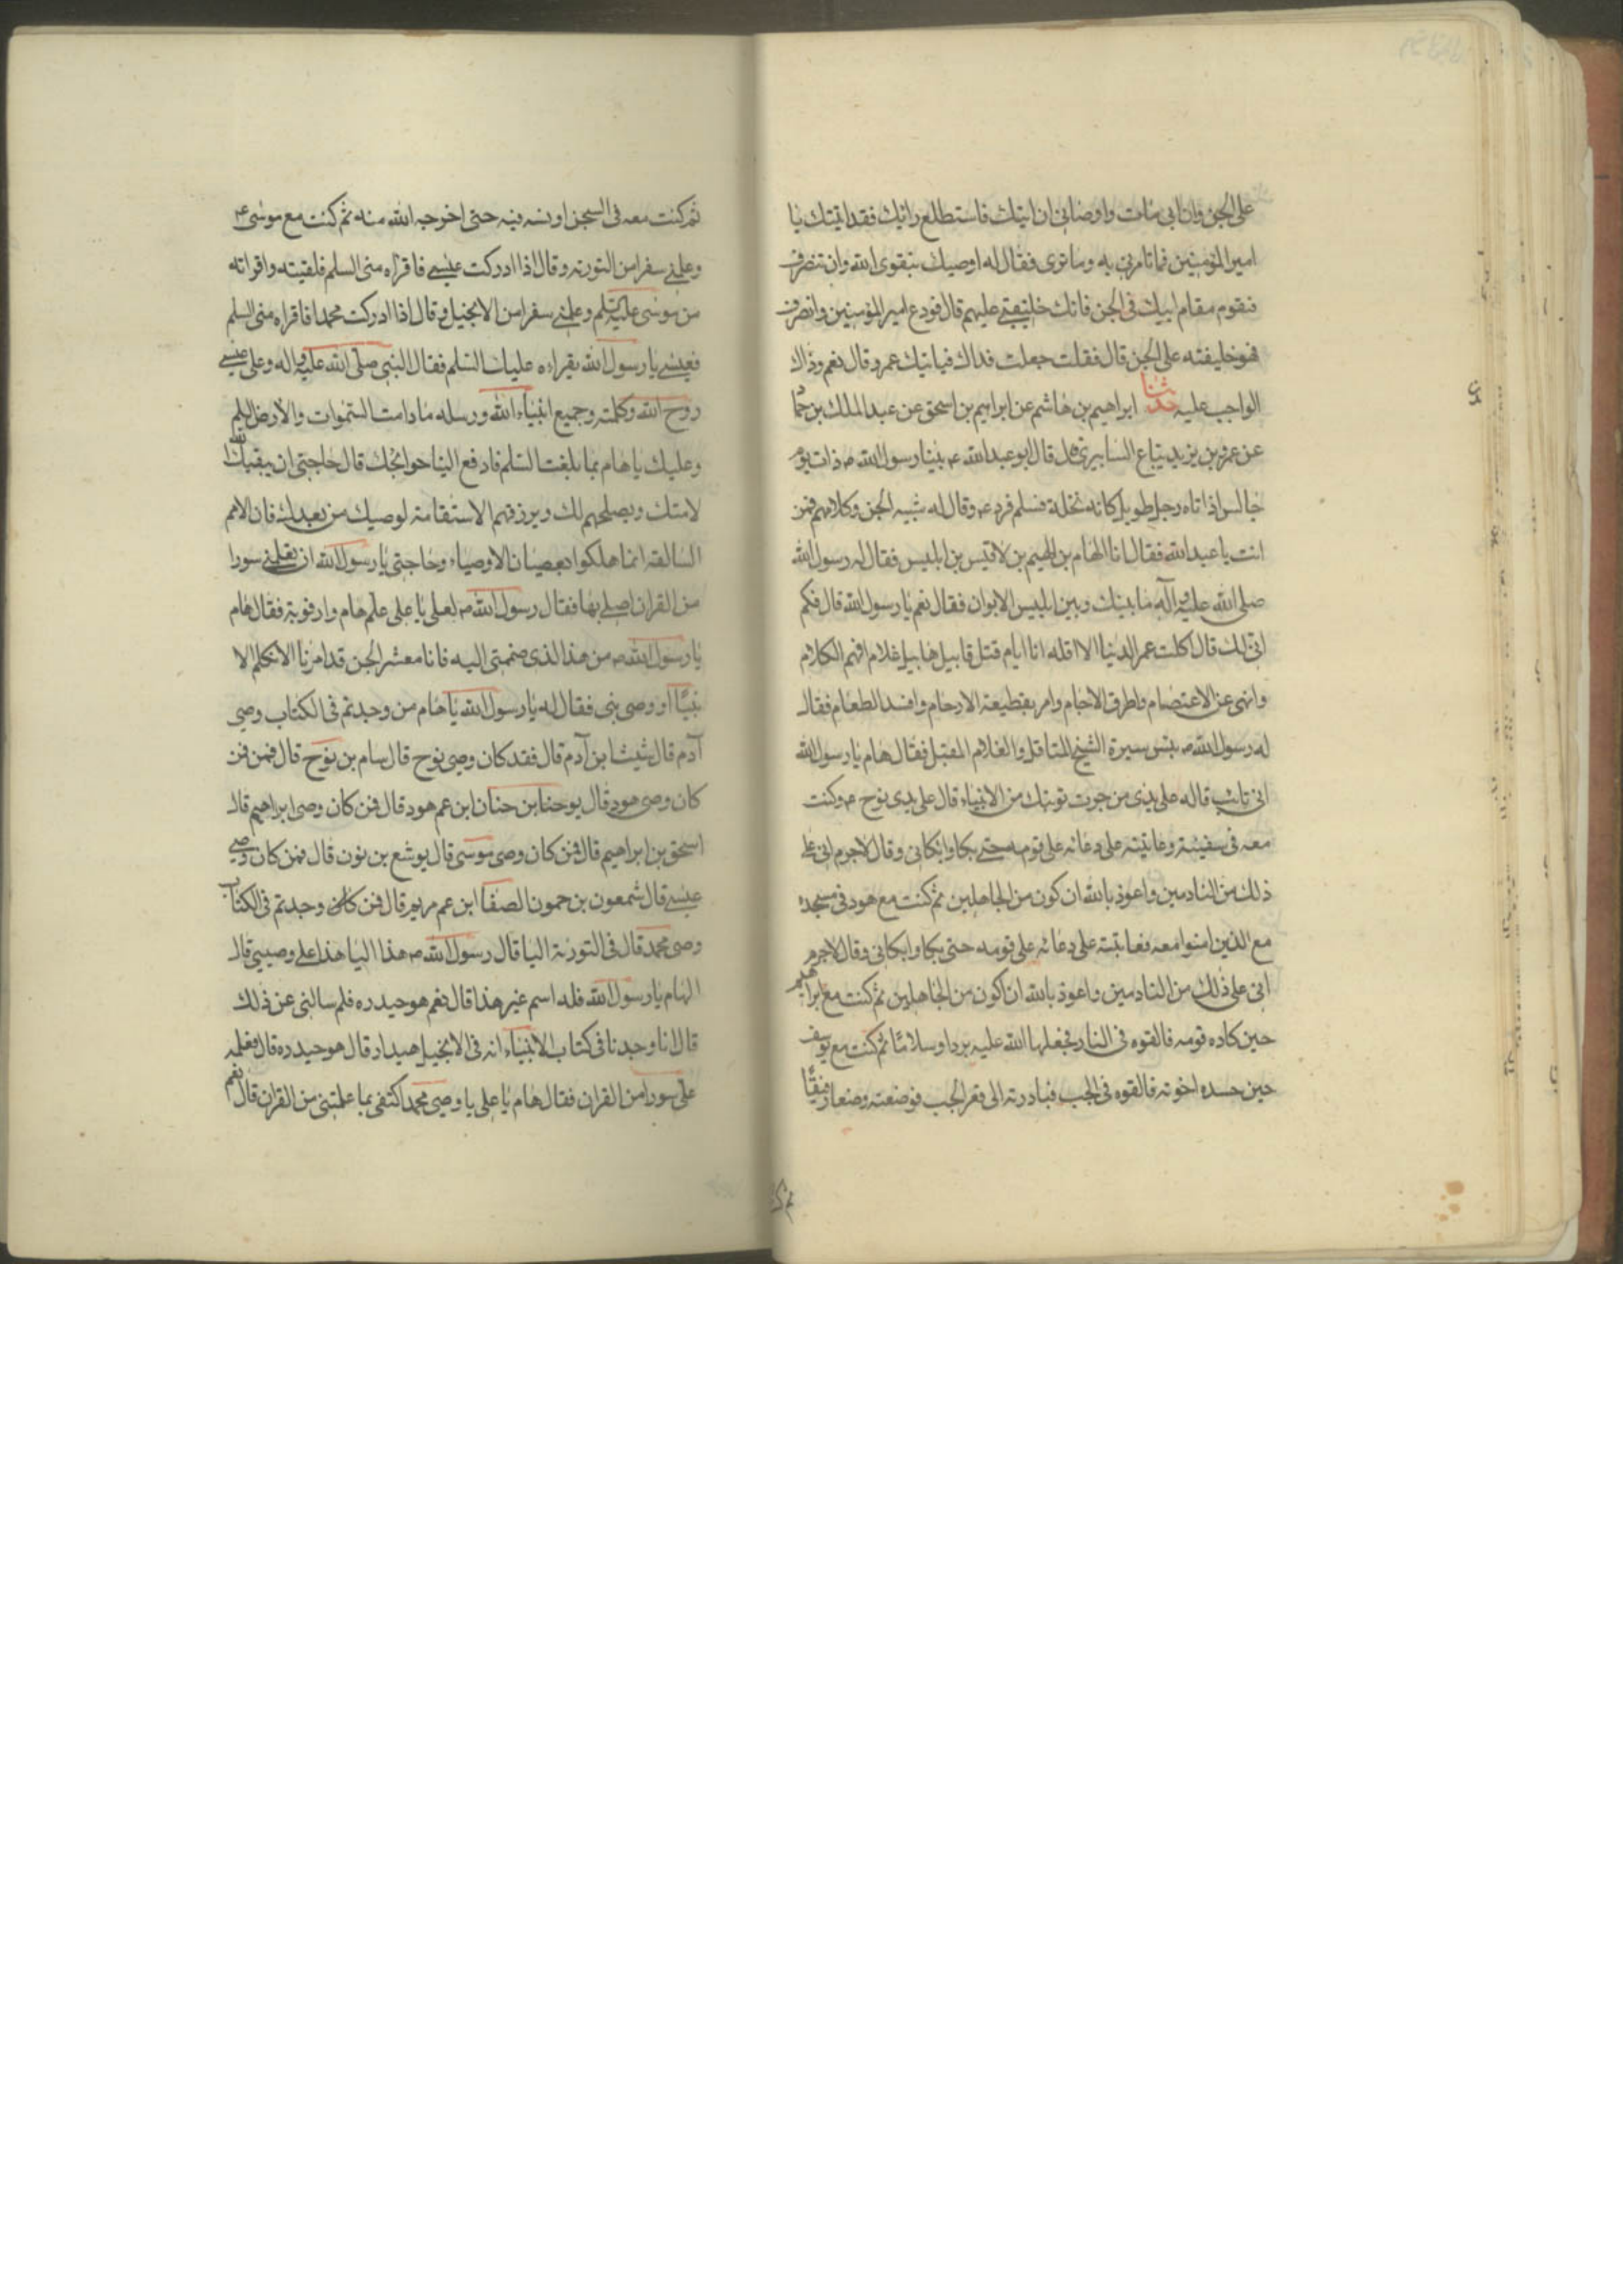 على الجن وان ابى مات واوصانى ان اتيتك فاستطلع رائك فقد اتيتك يا
امير المؤمنين فما تامرنى به وما ترى فقال له اوصيك بتقوى الله وان تنصرف
فتقوم مقام ابيك فى الجن فانك خليفتى عليهم قال فودع امير المؤمنين وانصرف
فهو خليفته على الجن قال فقلت جعلت فداك فيأتيك عمرو قال نعم وذاك
الواجب عليه حدثنا ابراهيم بن هاشم عن ابراهيم بن اسحق عن عبد الملك بن حما
عن عمر بن يزيد بياع السابرى قال قال ابو عبد الله ع بينا رسول الله ص ذات يوم
جالس اذا اتاه رجل طويل كانه نخلة فسلم فرد ع وقال له شبيه الجن وكلامهم فمن
انت يا عبد الله فقال انا الهام بن الهيم بن لاقيس بن ابليس فقال له رسول الله
صلى الله عليه وآله ما بينك وبين ابليس الا ابوان فقال نعم يا رسول الله قال فكم
اتى لك قال اكلت عمر الدنيا الا اقله انا ايام قتل قابيل هابيل غلام افهم الكلام
وانهى عن الاعتصام واطرق الاجام وامر بقطيعة الارحام وافسد الطعام فقال
له رسول الله ص بئس سيرة الشيخ المتاقل والغلام المقبل فقال هام يا رسول الله
انى تائب قال له على يدى من جرت توبتك من الانبياء قال على يدى نوح ع وكنت
معه فى سفينته وعاتبته على دعائه على قومه حتى بكا وابكانى وقال لا جرم انى على
ذلك من النادمين واعوذ بالله ان كون من الجاهلين ثم كنت مع هود فى مسجده
مع الذين امنوا معه فعاتبته على دعائه على قومه حتى بكا وابكانى وقال لا جرم
انى على ذلك من النادمين واعوذ بالله ان اكون من الجاهلين ثم كنت مع ابراهيم
حين كاده قومه فالقوه فى النار فجعلها الله عليه بردا وسلاما ثم كنت مع يوسف
حين حسده اخوته فالقوه فى الجب فبادرته الى قعر الجب فوضعته وضعا رفيقا
ثم كنت معه فى السجن اونسه فيه حتى اخرجه الله منه ثم كنت مع موسى ع
وعلمنى سفرا من التورية وقال اذا ادركت عيسى فاقراه منى السلم فلقيته واقراته
من موسى عليه السلم وعلمنى سفرا من الانجيل وقال اذا ادركت محمدا فاقراه منى السلم
فعيسى يا رسول الله يقراءه عليك السلم فقال النبى صلى الله عليه واله وعلى عيسى
روح الله وكلمته وجميع انبياء الله ورسله ما دامت السموات والارض السلم
وعليك يا هام بما بلغت السلم فادفع الينا حوائجك قال حاجتى ان يبقيك الله
لامتك ويصلحهم لك ويرزقهم الاستقامة لوصيك من بعدك فان الامم
السالفة انما هلكوا بعصيان الاوصياء وحاجتى يا رسول الله ان تعلمنى سورا
من القران اصلى بها فقال رسول الله ص لعلى يا على علم هام وارفق به فقال هام
يا رسول الله ص من هذا الذى ضممتنى اليه فانا معشر الجن قد امرنا الا نكلم الا
نبيا او وصى نبى فقال له يا رسول الله يا هام من وجدتم فى الكتاب وصى
آدم قال شيث ابن آدم قال فقد كان وصى نوح قال سام بن نوح قال فمن فمن
كان وصى هود قال يوحنا بن حنان ابن عم هود قال فمن كان وصى ابراهيم قال
اسحق بن ابراهيم قال فمن كان وصى موسى قال يوشع بن نون قال فمن كان وصى
عيسى قال شمعون بن حمون الصفا ابن عم مريم قال فمن كان وجدتم فى الكتاب
وصى محمد قال فى التورية اليا قال رسول الله ص هذا اليا هذا على وصيى قال
الهام يا رسول الله فله اسم غير هذا قال نعم هو حيدره فلم سالنى عن ذلك
قال انا وجدنا فى كتاب الانبياء انه فى الانجيل هيدار قال هو حيدره قال فعلمه
على سورا من القران فقال هام يا على يا وصى محمد اكتفى بما علمتنى من القران قال نعم